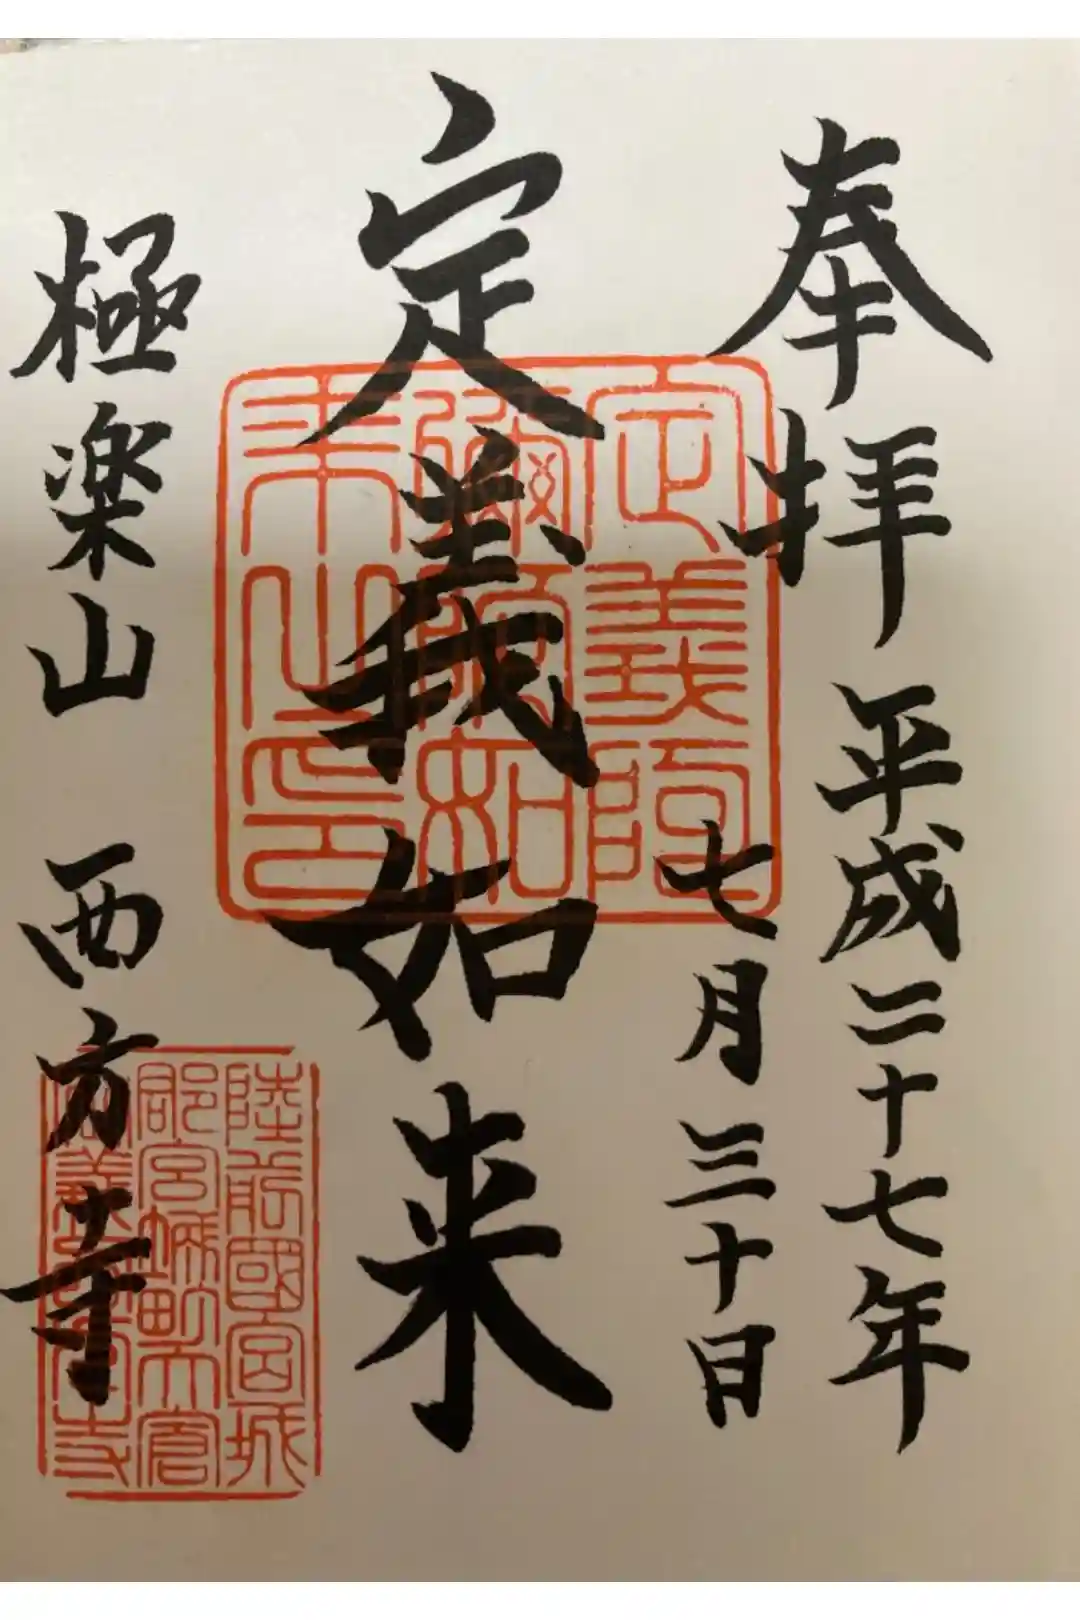 奉拝 平成二十七年
七月三十日
定義如来
極楽山 西方寺
定義院
彌陀如
来之印
陸前國宮城
郡宮城町大倉